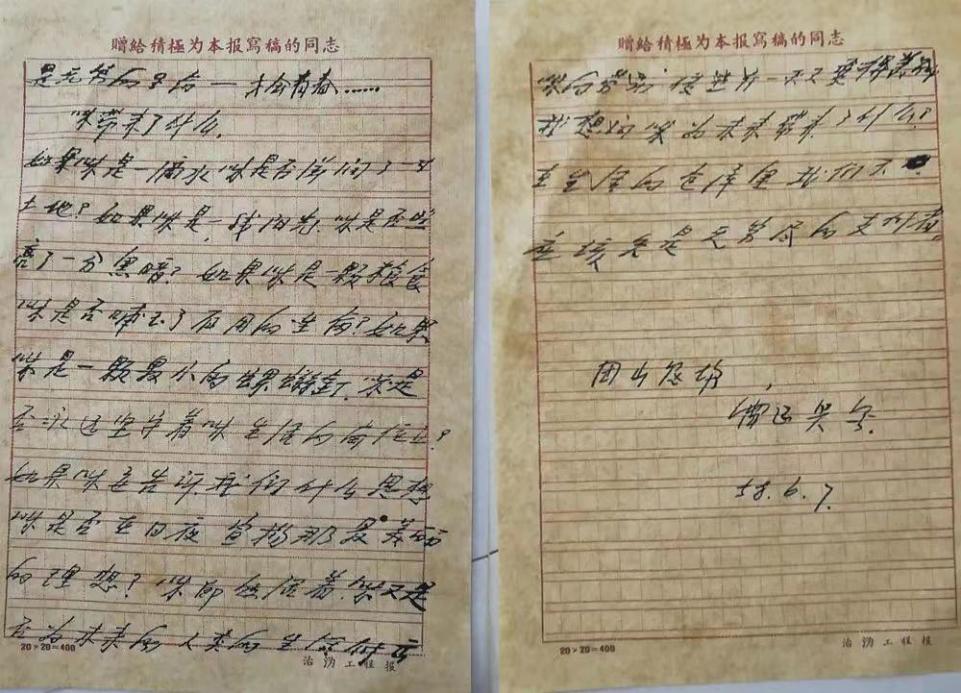 赠给積極为本报寫稿的同志
是无
才会青春……
咪带来了什么.
如果咪是一滴水咪是否滋润了一寸
土地?如果咪是一线阳光,咪是否照
亮了一分黑暗?如果咪是一颗粮食
咪是否哺育了有用的生命?如果
咪是一颗最小的螺丝钉,咪是
否永远坚守着咪生活的岗位上?
如果咪要告诉我们什么思想
咪是否在日夜宣扬那最美丽
的理想?咪即然活着,咪又是
否为未来的人类的生命付出
20×20=400
治淮工程报
赠给積極为本报寫稿的同志
咪的劳动,使世界一天天变得美丽
我想问咪为未来带来了什么?
在生活的仓库里我们不
应该只是无穷尽的支付者。
58.6.7.
20×20=400
治淮工程报